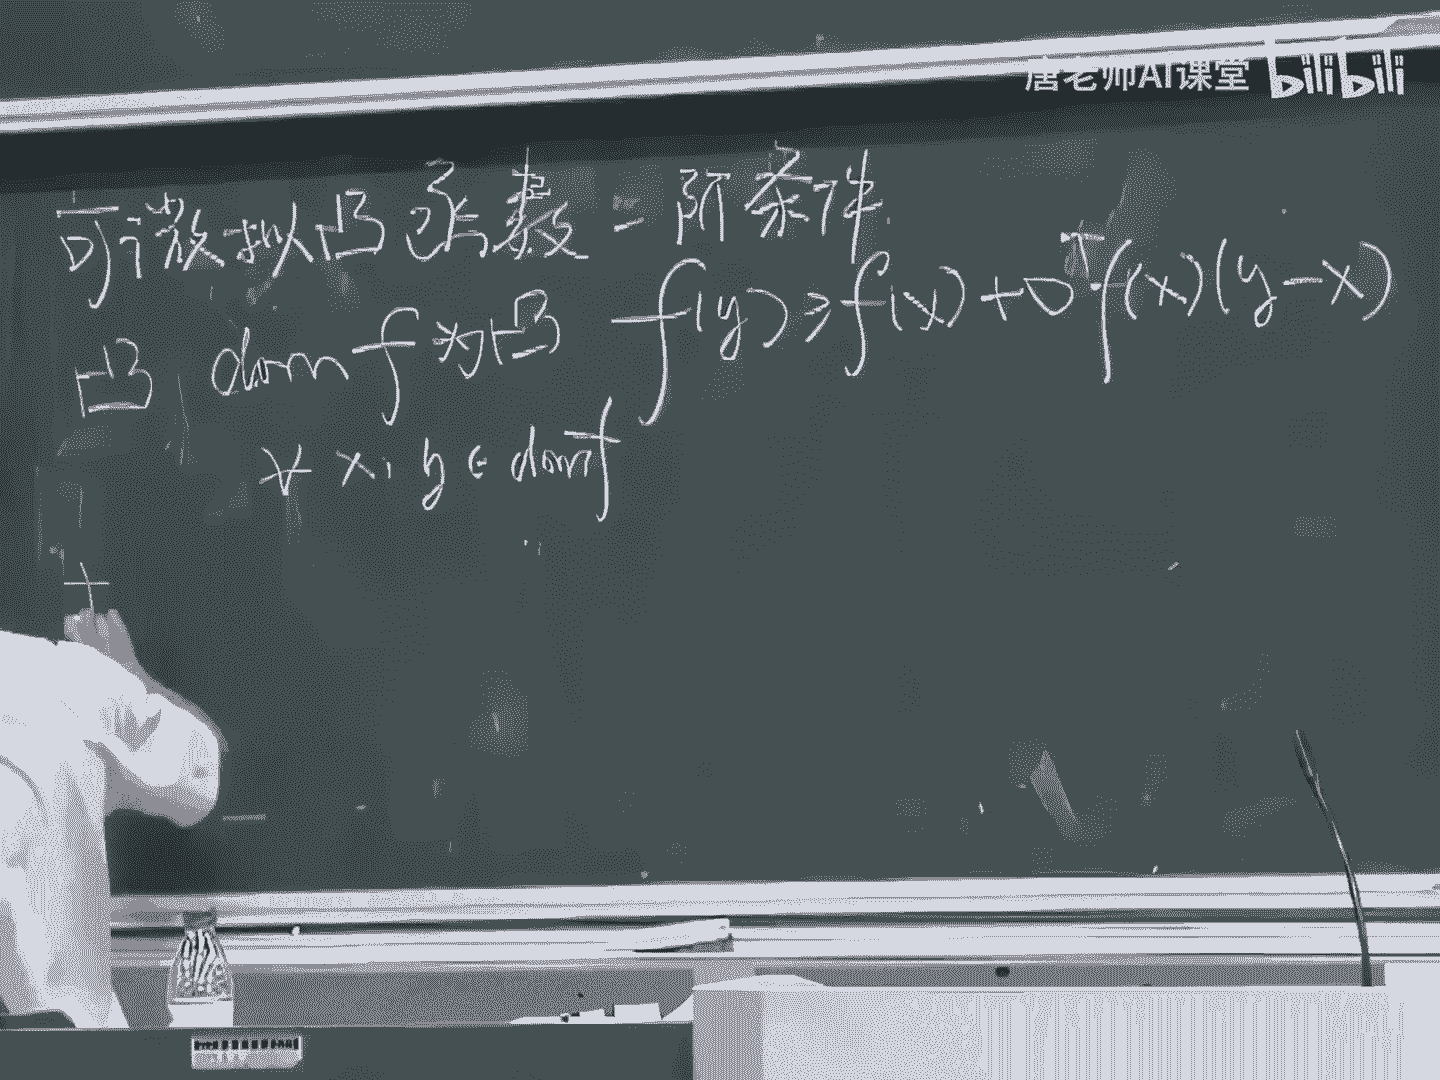 唐老师AI课堂 bilibili
可微拟凸函数一阶条件
凸 dom f 为凸 f(y) ≥ f(x) + ∇ᵀf(x)(y-x)
∀ x, y ∈ dom f